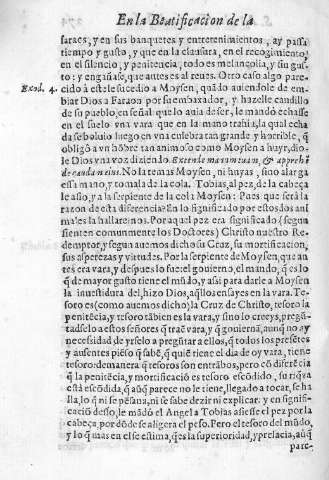 En la Beatificacion de la
saraos, y en sus banquetes y entretenimientos, ay passa
tiempo y gusto, y que en la clausura, en el recogimiento,
en el silencio, y penitencia, todo es melancolia, y sin gus-
to: y engañase, que antes es al reues. Otro caso algo pare-
Exod. 4.
cido à este le sucedio a Moysen, quãdo auiendole de em-
biar Dios a Faraon por su embaxador, y hazelle caudillo
de su pueblo, en señal que lo auia de ser, le mandò echasse
en el suelo vna vara que en la mano trahia, la qual echa
da se boluio luego en vna culebra tan grande y horrible, q̃
obligò a vn hõbre tan animoso como Moysen a huyr, dio-
le Dios vna voz diziendo. Extende manum tuam, & apprehẽ
de caudam eius. No la temas Moysen, ni huyas, sino alarga
essa mano, y tomala de la cola. Tobias, al pez, de la cabeça
le asio, y a la serpiente de la cola Moysen: Pues que serà la
razon de esta diferencia? En lo significado por estos dos ani
males la hallaremos. Por aquel pez era significado (segun
sienten comunmente los Doctores) Christo nuestro Re-
demptor, y segun auemos dicho su Cruz, su mortificacion,
sus asperezas y virtudes. Por la serpiente de Moysen, que an
tes era vara, y despues lo fue el gouierno, el mando, q̃ es lo
q̃ de mayor gusto tiene el mũdo, y assi para darle a Moysen
la inuestidura del, hizo Dios, aq̃llos ensayes en la vara. Te-
soro es (como auemos dicho) la Cruz de Christo, tesoro la
penitẽcia, y tesoro tãbien es la vara, y sino lo creeys, pregũ-
tadselo a estos señores q̃ traẽ vara, y q̃ gouiernã, aunq̃ no ay
necessidad, de yrselo a preguntar a ellos, q̃ todos los presẽtes
y ausentes piẽso q̃ sabẽ, q̃ quiẽ tiene el dia de oy vara, tiene
tesoro: demanera q̃ tesoros son entrãbos, pero cõ diferẽcia
q̃ la penitẽcia, y mortificació es tesoro escõdido, su riq̃za
està escõdida, q̃ aũq̃ parece no le tiene, llegado a tocar, se ha
lla, lo q̃ ni se pẽsaua, ni se sabe dezir ni explicar: y en signifi-
caciõ desso, le mãdò el Angel a Tobias asiesse el pez por la
cabeça, por dõde se aligera el peso. Pero el tesoro del mũdo,
y lo q̃ mas en el se estima, q̃ es la superioridad, y prelacia, aũq̃
pare-